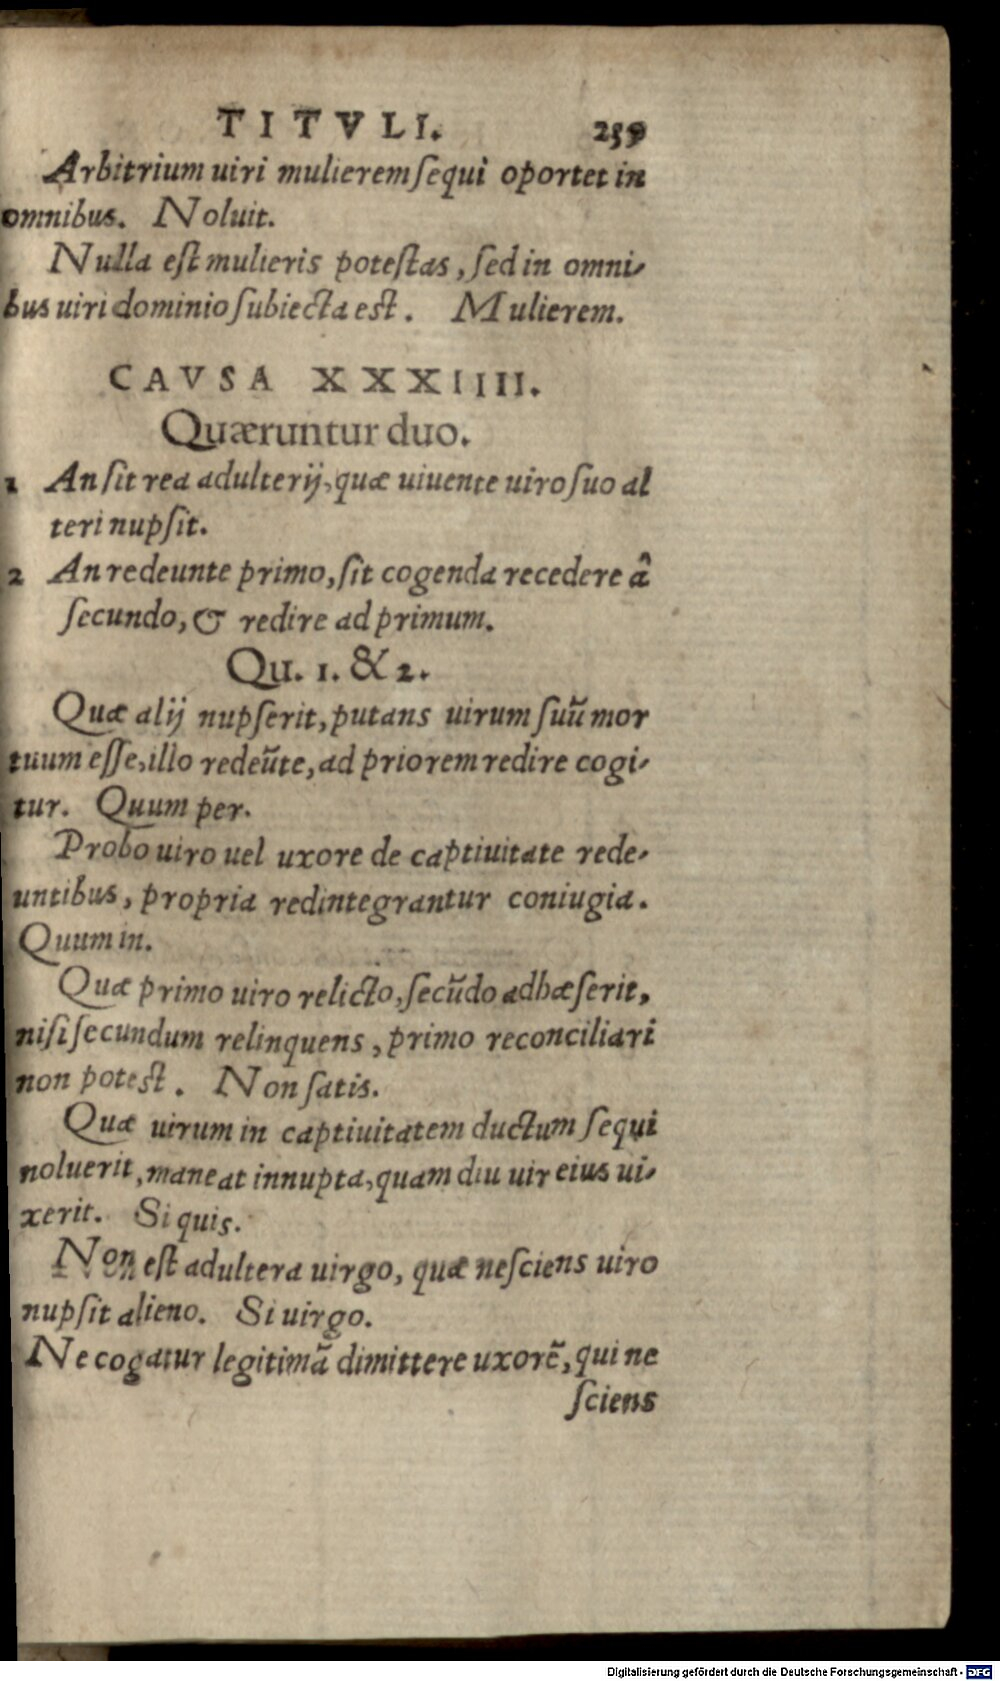 TITVLI. 259
Arbitrium uiri mulierem ſequi oportet in
omnibus. Noluit.
Nulla eſt mulieris poteſtas, ſed in omni-
bus uiri dominio ſubiecta eſt. Mulierem.
CAVSA XXXIIII.
Quæruntur duo.
1 An ſit rea adulterij, quæ uiuente uiro ſuo al
teri nupſit.
2 An redeunte primo, ſit cogenda recedere â
ſecundo, & redire ad primum.
Qu. 1. & 2.
Quæ alij nupſerit, putans uirum ſuũ mor
tuum eſſe, illo redeũte, ad priorem redire cogi-
tur. Quum per.
Probo uiro uel uxore de captiuitate rede-
untibus, propria redintegrantur coniugia.
Quum in.
Quæ primo uiro relicto, ſecũdo adhæſerit,
niſi ſecundum relinquens, primo reconciliari
non poteſt. Non ſatis.
Quæ uirum in captiuitatem ductum ſequi
noluerit, maneat innupta, quam diu uir eius ui-
xerit. Si quis.
Non eſt adultera uirgo, quæ neſciens uiro
nupſit alieno. Si uirgo.
Ne cogatur legitimã dimittere uxorẽ, qui ne
ſciens
Digitalisierung gefördert durch die Deutsche Forschungsgemeinschaft - DFG